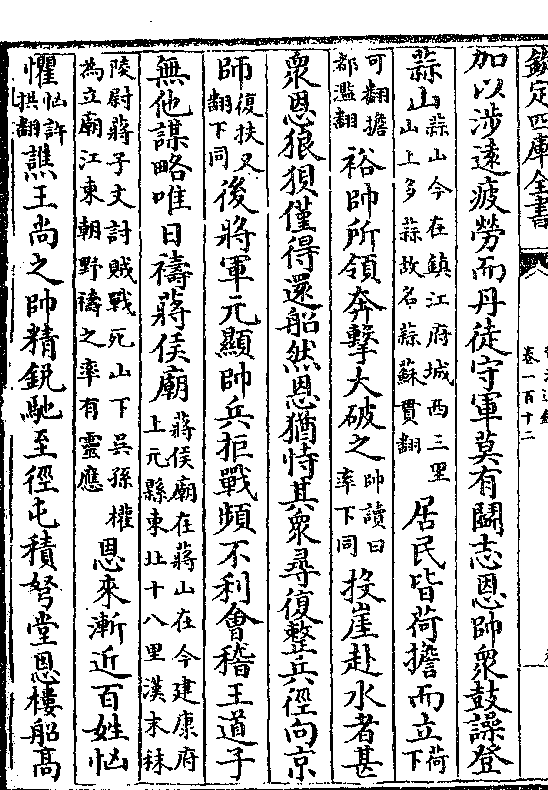 欽定四庫全書
卷一百十二
加以涉遠疲勞而丹徒守軍莫有鬭志恩帥衆鼓譟登
蒜山蒜山今在鎮江府城西三里山上多蒜故名蒜蘇貫翻居民皆荷擔而立荷下
可翻擔都濫翻裕帥所領奔擊大破之帥讀曰率下同投崖赴水者甚
衆恩狼狽僅得還船然恩猶恃其衆尋復整兵徑向京
師復扶又翻下同後將軍元顯帥兵拒戰頻不利會稽王道子
無他謀略唯日禱蔣侯廟蔣侯廟在蔣山在今建康府上元縣東北十八里漢末秣
陵尉蔣子文討賊戰死山下吳孫權為立廟江東朝野禱之率有靈應恩來漸近百姓恟
懼恟許拱翻譙王尚之帥精銳馳至徑屯積弩堂恩樓船高